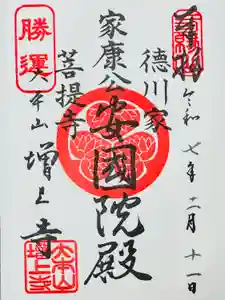 奉拝
令和七年二月十一日
徳川家
菩提寺
家康公
安國院殿
勝運
大本山
増上寺
大本山
増上寺